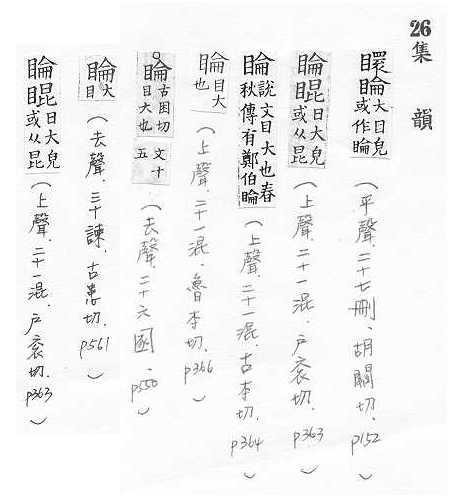 26集韻
睔大目皃或作睔(平聲.二十七刪.胡關切.p152)
睔睴目大皃或从昆(上聲.二十一混.戶袞切.p363)
睔說文目大也春秋傳有鄭伯睔(上聲.二十一混.古本切.p364)
睔目大也(上聲.二十一混.魯本切.p366)
睔古困切目大也文十五(去聲.二十六圂.p550)
睔大目(去聲.三十諫.古患切.p561)
睔睴目大皃或从昆(上聲.二十一混.戶袞切.p363)